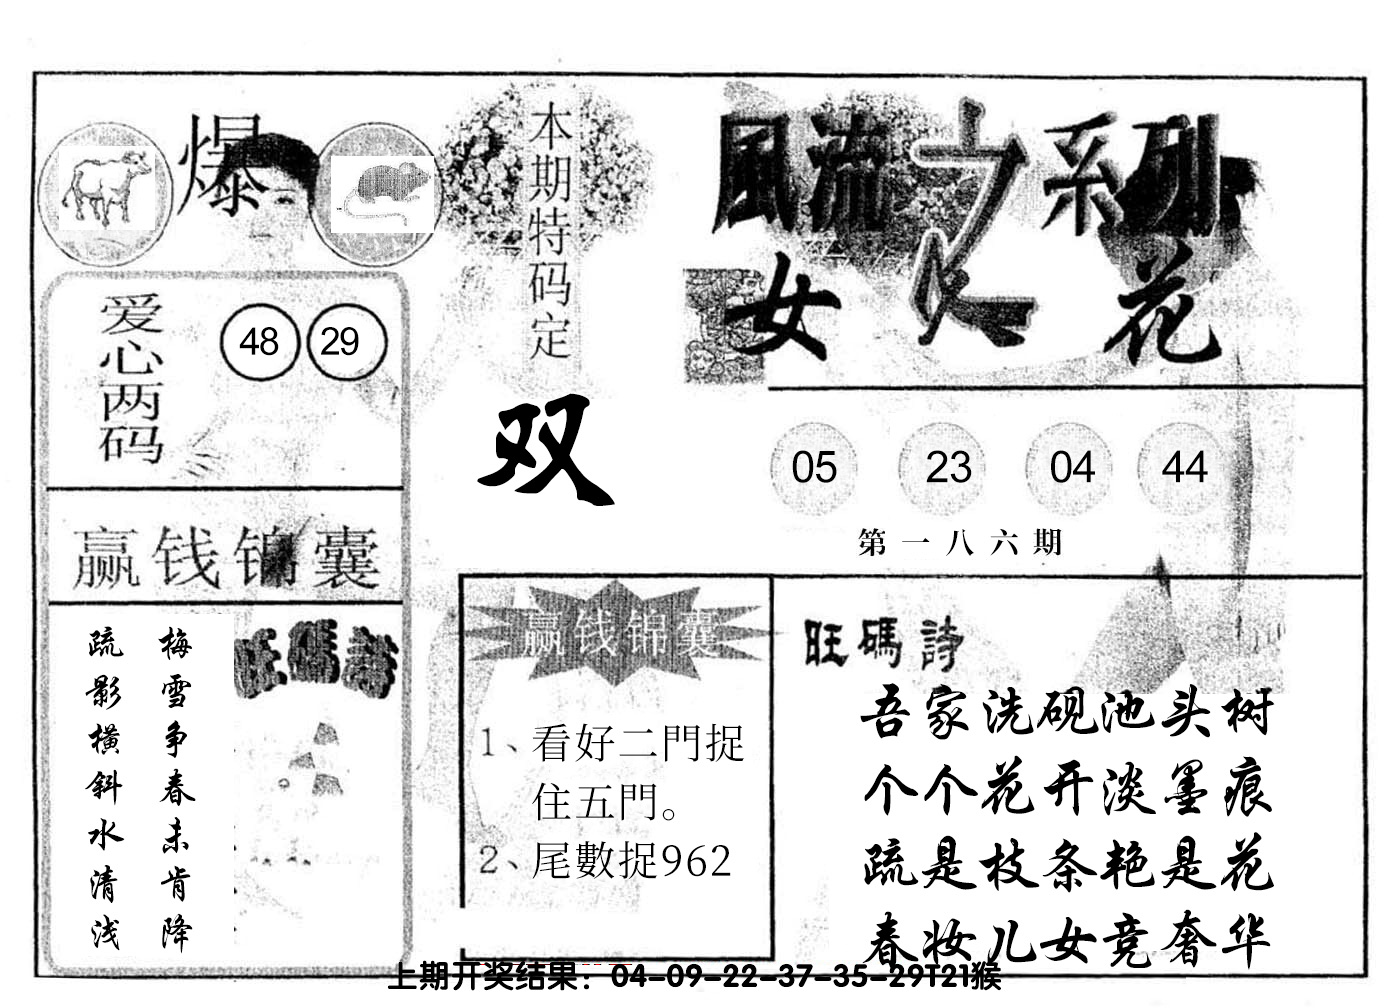 爆
本期特码定
双
風流之系列
女人花
爱心两码
48 29
05 23 04 44
第一八六期
赢钱锦囊
梅雪争春未肯降
疏影横斜水清浅
旺碼詩
赢钱锦囊
1、看好二門捉
住五門。
2、尾數捉962
旺碼詩
吾家洗砚池头树
个个花开淡墨痕
疏是枝条艳是花
春妆儿女竞奢华
上期开奖结果：04-09-22-37-35-29T21猴